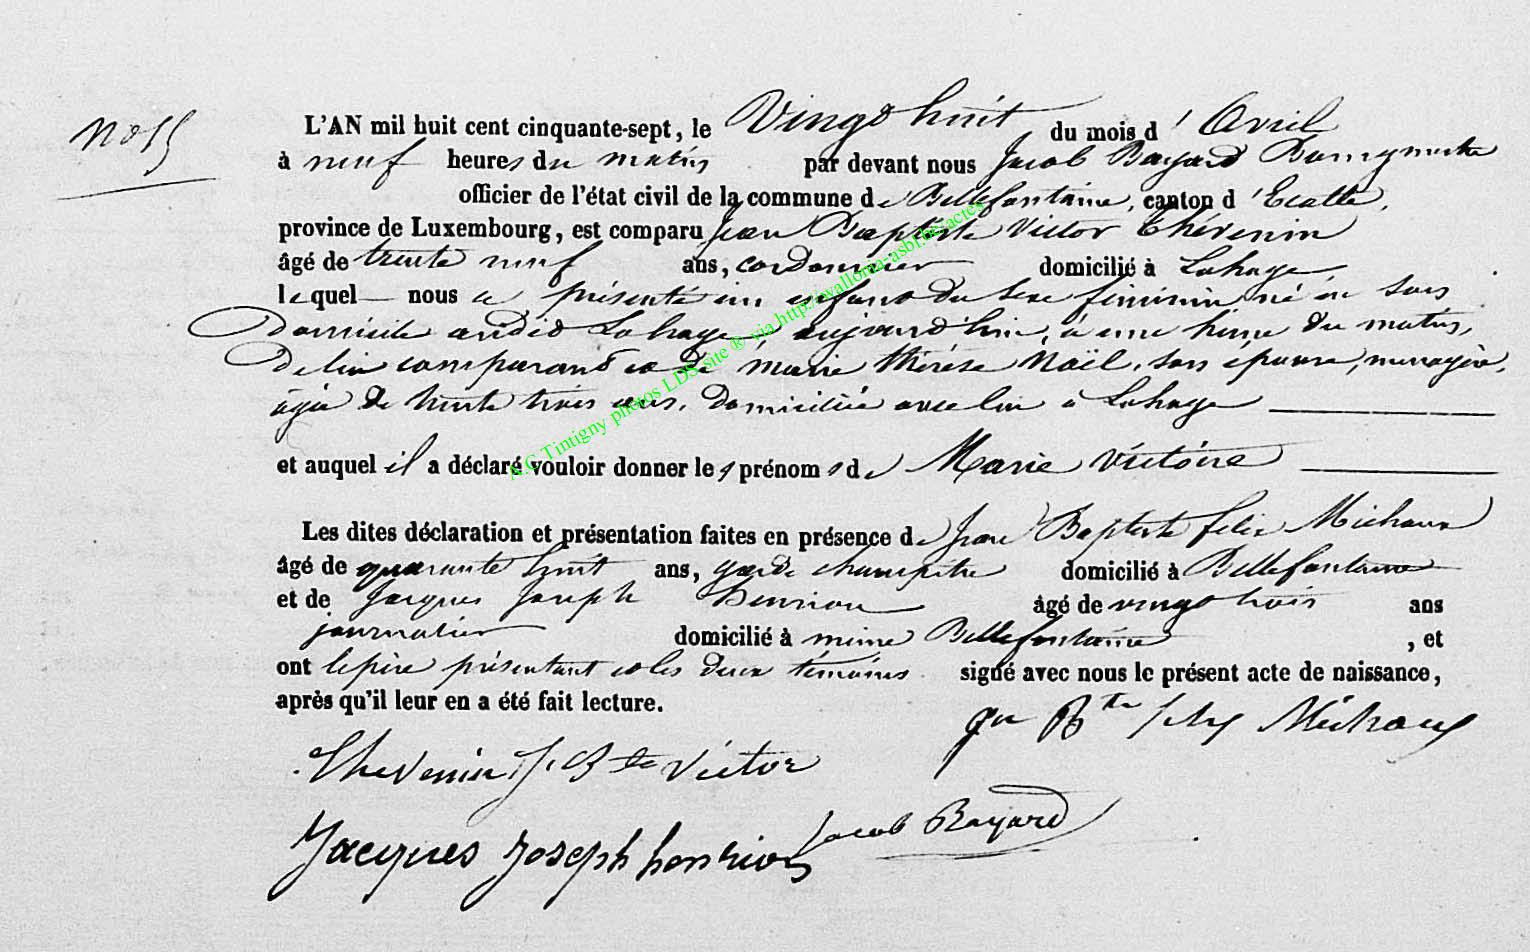 No 15
L'AN mil huit cent cinquante-sept, le Vingt huit du mois d'Avril
à neuf heures du matin par devant nous Jacob Bayard Bourgmestre
officier de l'état civil de la commune de Bellefontaine, canton d'Etalle,
province de Luxembourg, est comparu Jean Baptiste Victor Thévenin
âgé de trente neuf ans, cordonnier domicilié à Lahage,
lequel nous a présenté un enfant du sexe féminin né en son
domicile audit Lahage aujourd'hui, à une heure du matin,
de lui comparant et de marie thérèse Noël, son épouse, menagère,
agée de trente trois ans, domiciliée avec lui a Lahage
et auquel il a déclaré vouloir donner les prénoms de Marie Victoire
Les dites déclaration et présentation faites en présence de Jean Baptiste felix Michaux
âgé de quarante huit ans, garde champêtre domicilié à Bellefontaine
et de Jacques Joseph Henrion âgé de vingt trois ans
journalier domicilié à même Bellefontaine, et
ont le père présentant et les deux témoins signé avec nous le présent acte de naissance,
après qu'il leur en a été fait lecture.
Jn Bte felix Michaux
Thevenin J. Bte Victor
Jacob Bayard
Jacques Joseph henrion
A.C Tintigny photos LDS site ® via http://wallonia-asbl.be/actes